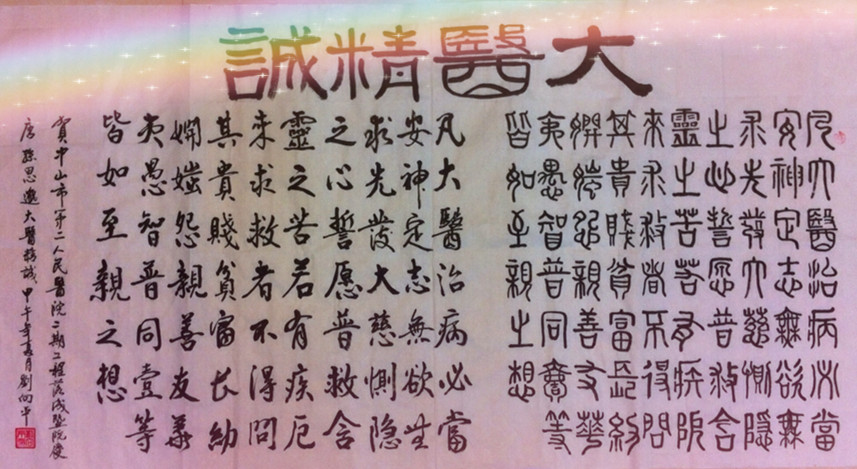 大醫精誠
凡大醫治病必當
安神定志無欲無
求先發大慈惻隱
之心誓愿普救含
靈之苦若有疾厄
來求救者不得問
其貴賤貧富長幼
妍媸怨親善友華
夷愚智普同壹等
皆如至親之想
凡大醫治病必當
安神定志無欲無
求先發大慈惻隐
之心誓愿普救含
靈之苦若有疾厄
来求救者不得問
其貴賤貧富长幼
妍媸怨親善友華
夷愚智普同壹等
皆如至親之想
賀中山市第二人民醫院二期工程落成暨院慶
唐孫思邈大醫精誠 甲午年月劉向平